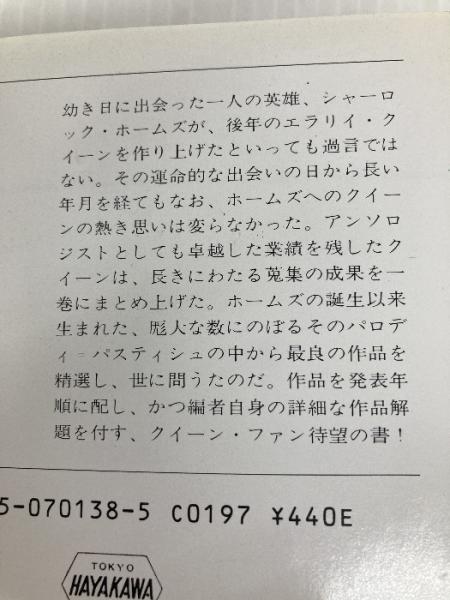 幼き日に出会った一人の英雄、シャーロ
ック・ホームズが、後年のエラリイ・ク
イーンを作り上げたといっても過言では
ない。その運命的な出会いの日から長い
年月を経てもなお、ホームズへのクイー
ンの熱き思いは変らなかった。アンソロ
ジストとしても卓越した業績を残したク
イーンは、長きにわたる蒐集の成果を一
巻にまとめ上げた。ホームズの誕生以来
生まれた、厖大な数にのぼるそのパロデ
ィ＝パスティシュの中から最良の作品を
精選し、世に問うたのだ。作品を発表年
順に配し、かつ編者自身の詳細な作品解
題を付す、クイーン・ファン待望の書！
5-070138-5 C0197 ¥440E
TOKYO
HAYAKAWA